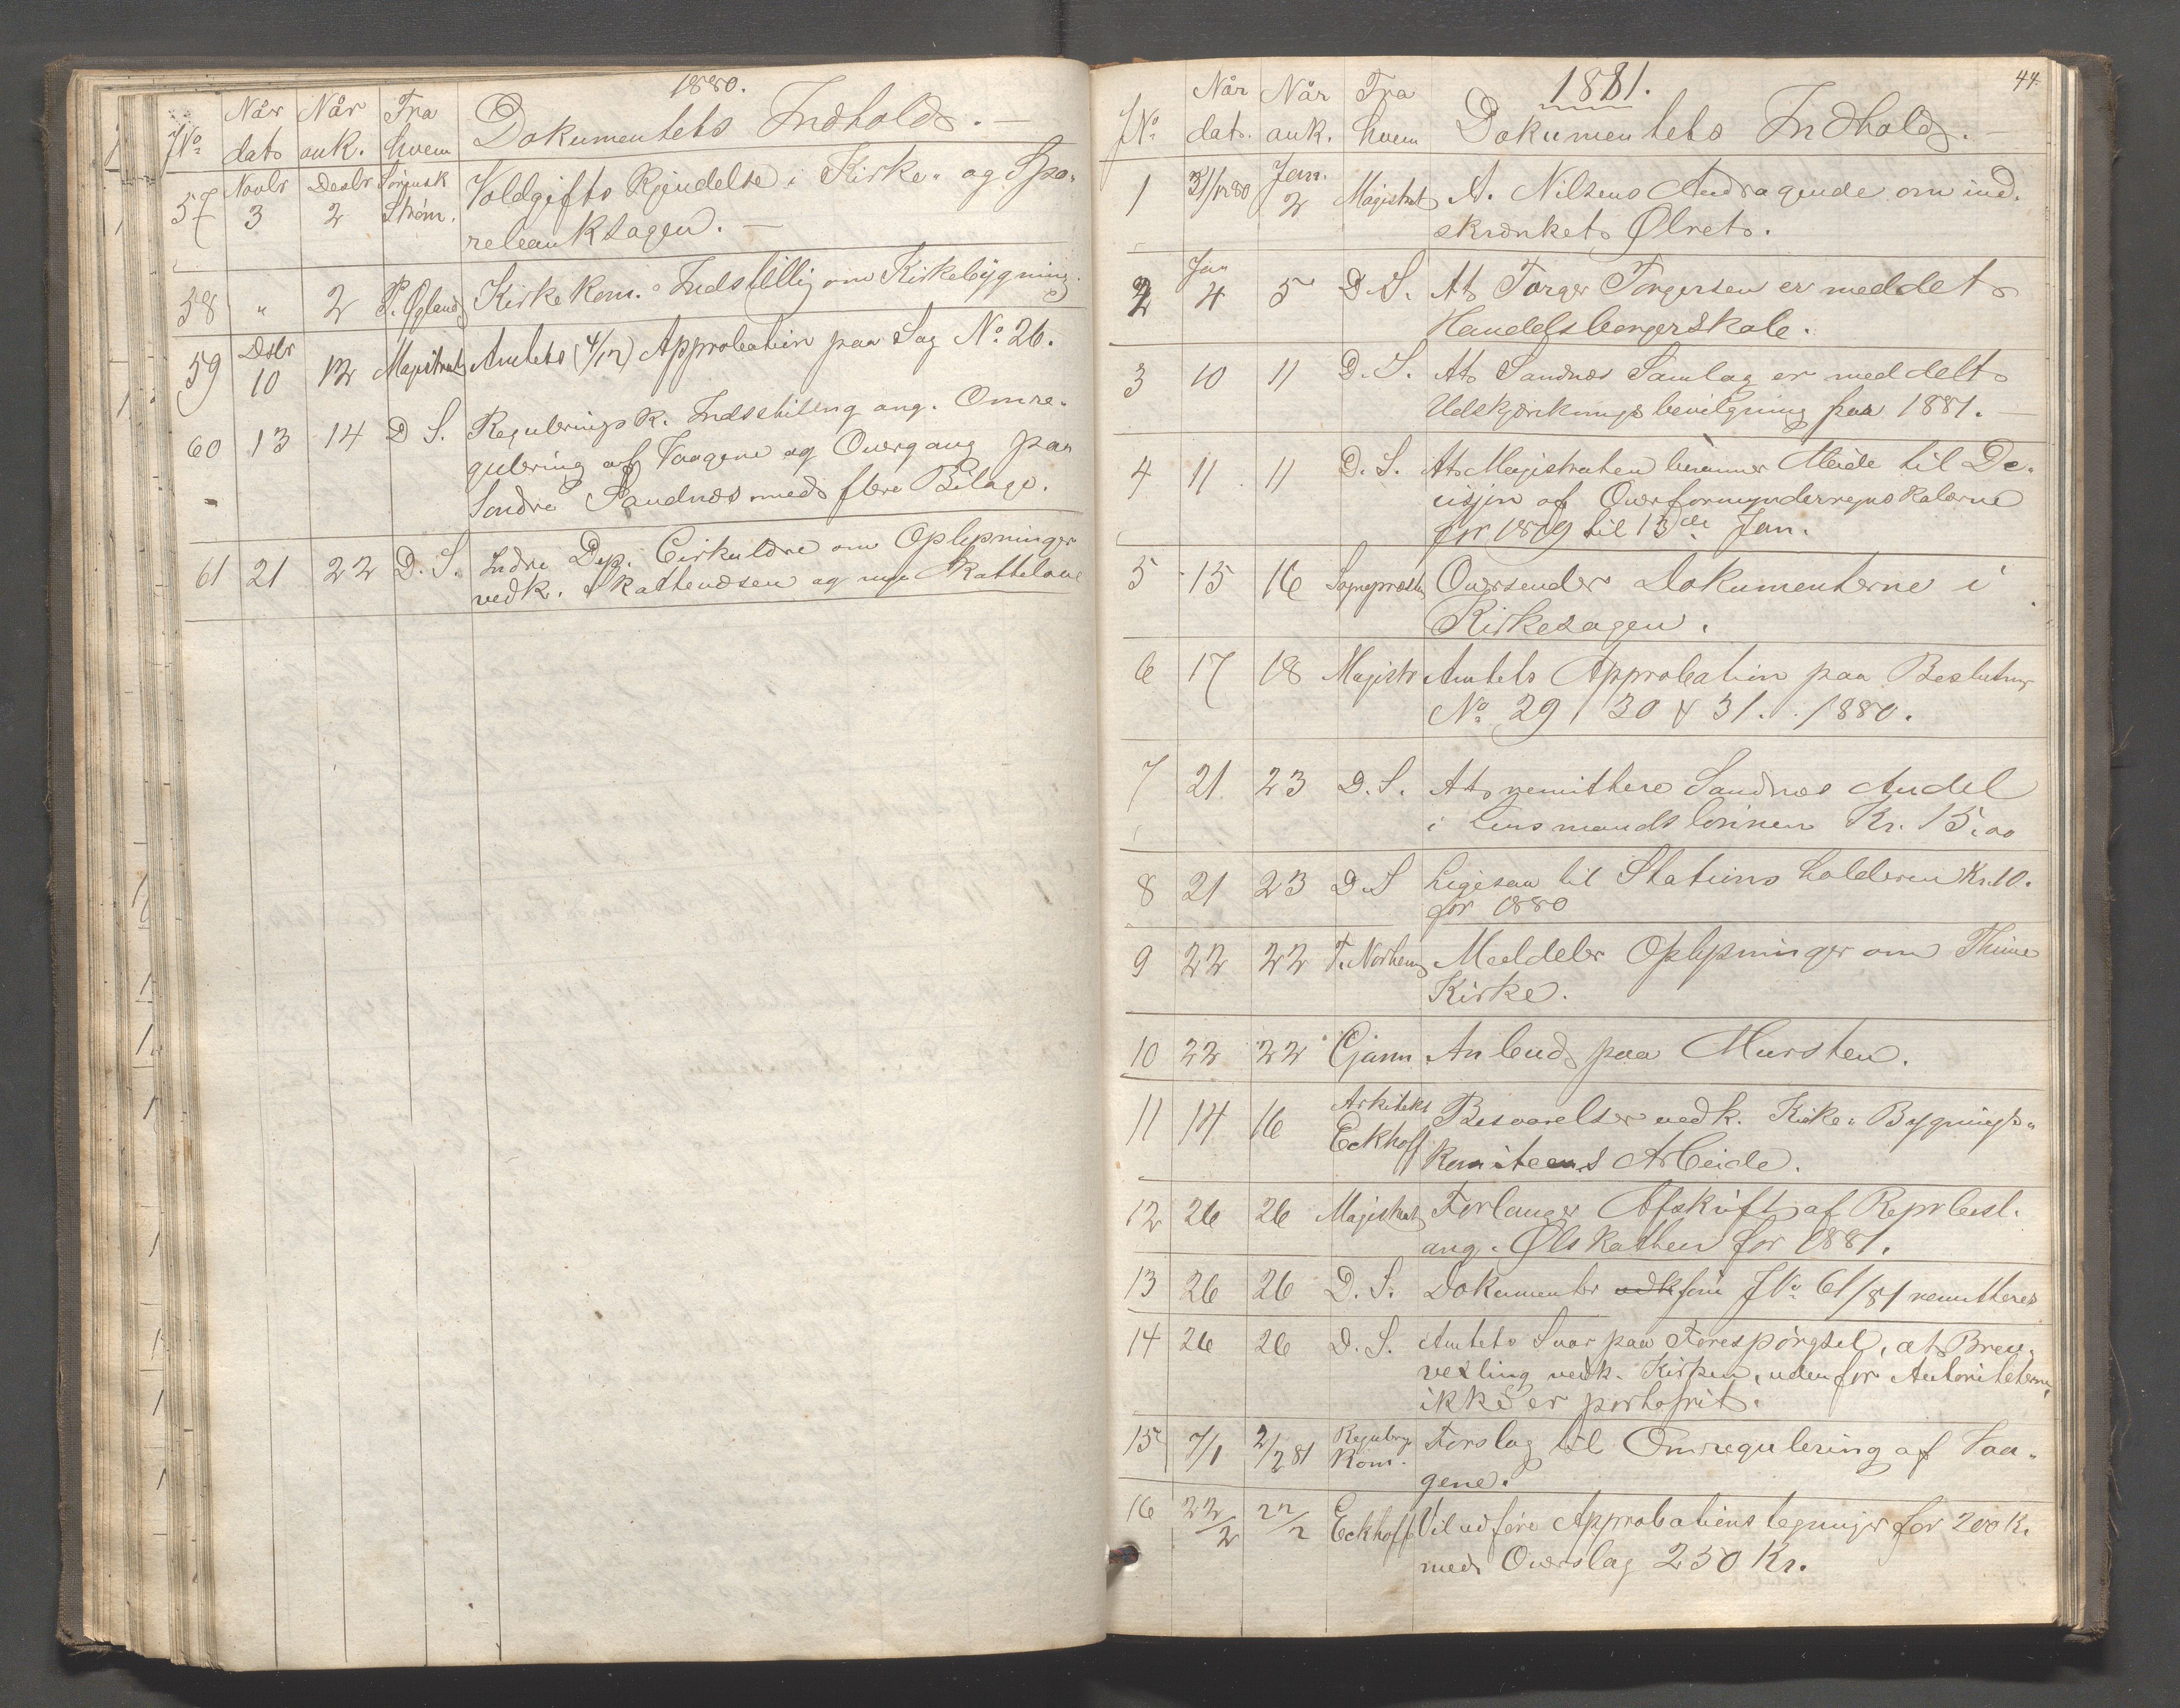 1880.
J№ Når dat. Når ank. Fra hvem Dokumentets Indhold. —
57 Novbr 3 Desbr 2 Sørensk Strøm. Voldgifts Kjendelse i Kirke- og Spo-
rebanksagen. —
58 " 2 P. Øgland Kirkekom. Indstilling om Kirkebygning
59 Dsbr 10 12 Magistrat Amtets (4/12) Approbation paa Sag No. 26.
60 13 14 D S. Regulerings K. Indstilling ang. Omre-
gulering af Vaagene og Overgang paa
Søndre Sandnæs med flere Bilage.
61 21 22 D. S. Indre Dep. Cirkulære om Oplysninger
vedk. Skattevæsen og nye Skattelove
44
1881.
J№ Når dat. Når ank. Fra hvem Dokumentets Indhold.
1 31/12 80 Jan. 2 Magistrat A. Nilsens Andragende om ind-
skrænket Ølret.
2 Jan 4 5 D. S. At Torger Torgersen er meddelt
Handelsborgerskab.
3 10 11 D. S. At Sandnæs Samlag er meddelt
Udskjænkningsbevilgning paa 1881. —
4 11 11 D. S. At Magistraten berammer Møde til De-
cisjon af Overformynderregnskaberne
for 1879 til 13de Jan.
5 15 16 Sognepræsten Oversender Dokumenterne i
Kirkesagen.
6 17 18 Magistr Amtets Approbation paa Beslutning
No 29, 30 & 31. 1880.
7 21 23 D. S. At remittere Sandnæs Andel
i Lensmandslønnen Kr. 15,00
8 21 23 D. S Ligesaa til Stationsholderen Kr. 10.
for 1880
9 22 22 Meddeler Oplysninger om Thime
Kirke.
10 22 22 Gjann Anbud paa Mursten.
11 14 16 Arkitekt Eckhoff Besvarelser vedk. Kirke- Bygnings-
Komiteens Arbeide.
12 26 26 Magistrat Forlanger Afskrift af Reprbesl.
ang. Ølskatten for 1881.
13 26 26 D. S. Dokumenter vedk J No 61/81 remitteres
14 26 26 D. S. Amtets Svar paa Forespørgsel, at Brev-
vexling vedk. Kirken, udenfor Autoriteterne,
ikke er portofrit.
15 7/1 2/2 81 Regulerg. Kom. Forslag til Omregulering af Vaa-
gene.
16 22/2 22/2 Eckhoff Vil udføre Approbationstegninger for 200 K.
med Overslag 250 Kr.